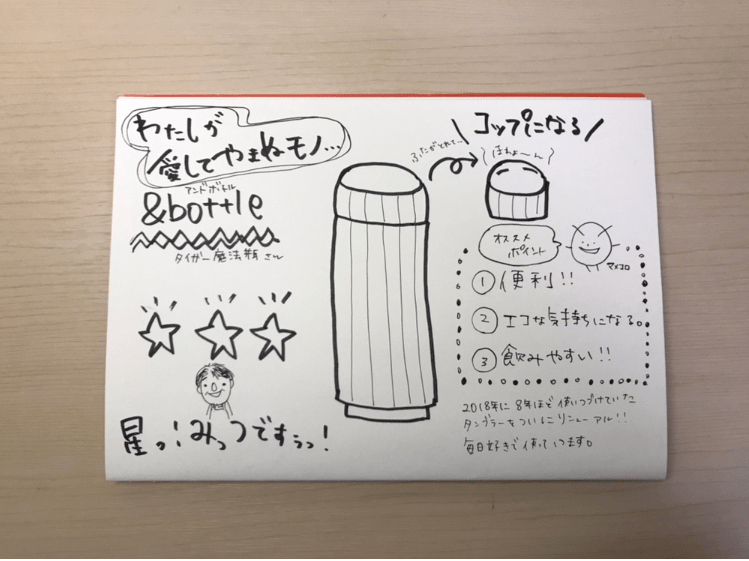 わたしが
愛してやまぬモノ...
アンドボトル
&bottle
タイガー魔法瓶さん
星っ!みっつですぅっ!
ふたがとれて...
\コップになる/
ほわょーん
オススメ
ポイント
マメコロ
① 便利!!
② エコな気持ちになる。
③ 飲みやすい!!
2018年に8年ほど使いつづけていた
タンブラーをついにリニューアル!!
毎日好きで使ってます。